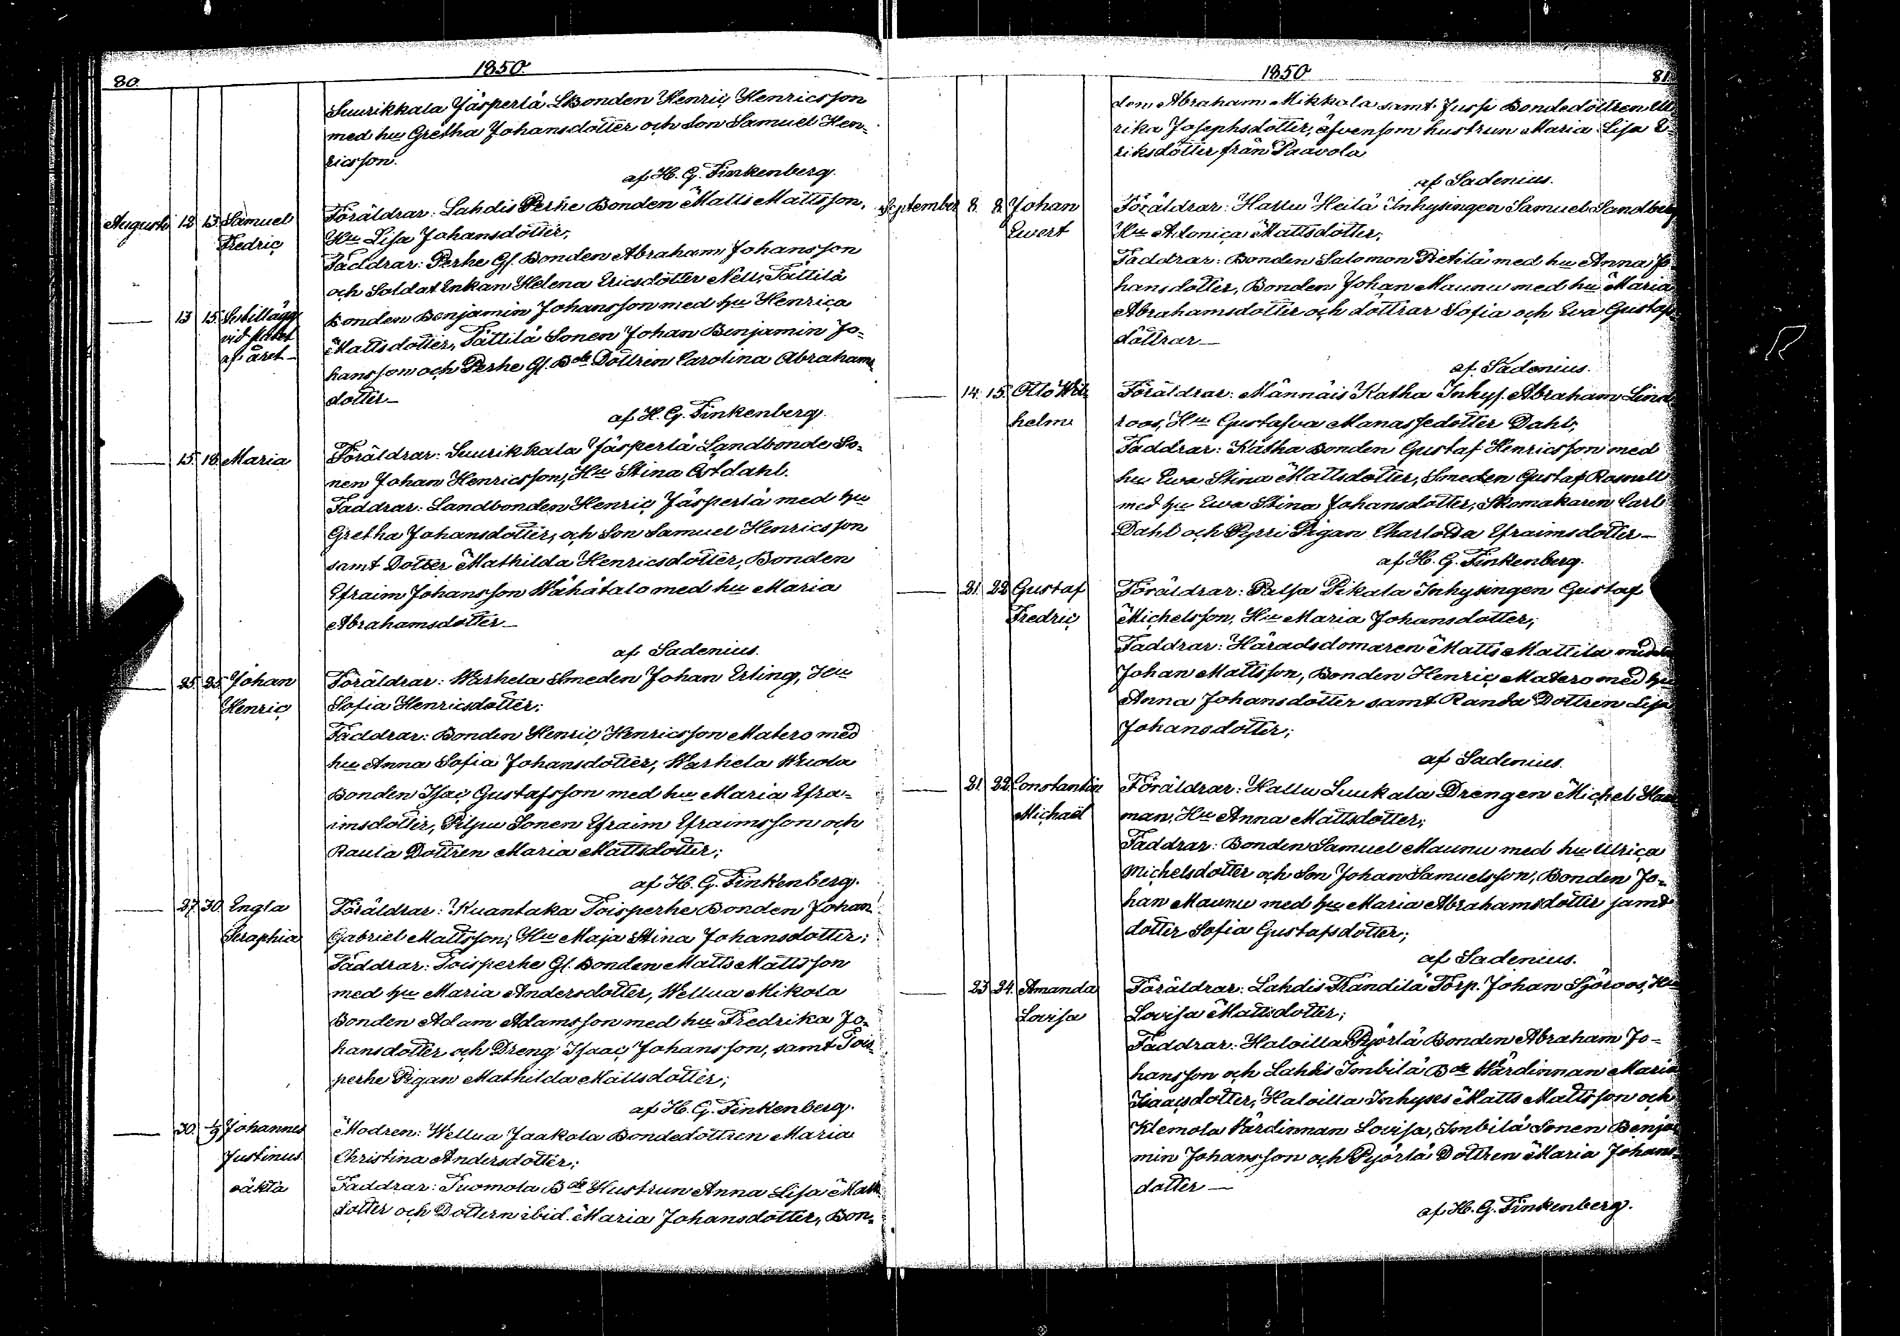 80.
1850.
Suurikkala Jäsperlä LBonden Henric Henricsson
med hu Gretha Johansdotter och Son Samuel Hen-
ricsson.
af H. G. Finkenberg.
Augusti 12 13 Samuel Fredric
Föräldrar: Lahdis Perhe Bonden Matts Mattsson,
Hu Lisa Johansdotter;
Faddrar: Perhe Gl. Bonden Abraham Johansson
och Soldat Enkan Helena Ericsdotter Nell, Tättilä
— 13 15 Se tillägg vid slutet af året —
Bonden Benjamin Johansson med hu Henrica
Mattsdotter, Tättilä Sonen Johan Benjamin Jo-
hansson och Perhe Gl. Bde Dottren Carolina Abrahams
dotter—
af H. G. Finkenberg.
— 15 18 Maria
Föräldrar: Suurikkala Jäsperlä Landbonde So-
nen Johan Henricsson, Hu Stina Ostdahl.
Faddrar: Landbonden Henric Jäsperlä med hu
Gretha Johansdotter, och Son Samuel Henricsson
samt Dotter Mathilda Henricsdotter, Bonden
Efraim Johansson Wähätalo med hu Maria
Abrahamsdotter—
af Sadenius.
— 25. 25. Johan Henric
Föräldrar: Warhela Smeden Johan Erling, Hu
Sofia Henricsdotter;
Faddrar: Bonden Henric Henricsson Matero med
hu Anna Sofia Johansdotter, Warhela Wuola
Bonden Isac Gustafsson med hu Maria Efra-
imsdotter, Pilpu Sonen Efraim Efraimsson och
Raula Dottren Maria Mattsdotter;
af H. G. Finkenberg.
— 27. 30. Engla Seraphia
Föräldrar: Kuantaka Toisperhe Bonden Johan
Gabriel Mattsson; Hu Maja Stina Johansdotter;
Faddrar: Toisperhe Gl. Bonden Matts Mattsson
med hu Maria Andersdotter, Wellua Mikola
Bonden Adam Adamsson med hu Fredrika Jo-
hansdotter och Dreng Isaac Johansson, samt Tois-
perhe Pigan Mathilda Mattsdotter;
af H. G. Finkenberg.
— 30. 1/9 Johannes Justinus oäkta
Modren: Wellua Jaakola Bondedottren Maria
Christina Andersdotter;
Faddrar: Tuomola Bde Hustrun Anna Lisa Matts
dotter och Dottern ibid. Maria Johansdotter, Bon-
1850
81.
den Abraham Mikkola samt Jussi Bondedottren Ul
rika Josephsdotter, äfvensom hustrun Maria Lisa E-
riksdotter från Paavola
af Sadenius.
September 8. 8. Johan Evert
Föräldrar: Hallu Heilä Inhysingen Samuel Sandberg
Hu Adonica Mattsdotter;
Faddrar: Bonden Salomon Pietilä med hu Anna Jo
hansdotter, Bonden Johan Maunu med hu Maria
Abrahamsdotter och döttrar Sofia och Eva Gustafs
döttrar—
af Sadenius.
14. 15. Otto Wil- helm
Föräldrar: Männäis Katha Inhys. Abraham Lind
roos, Hu Gustafva Manassedotter Dahl;
Faddrar: Katha Bonden Gustaf Henricsson med
hu Eva Stina Mattsdotter, Smeden Gustaf Rosnell
med hu Eva Stina Johansdotter, Skomakaren Carl
Dahl och Pyrri Pigan Charlotta Efraimsdotter—
af H. G. Finkenberg.
— 21. 22 Gustaf Fredric
Föräldrar: Palsa Pikala Inhysingen Gustaf
Michelsson, Hu Maria Johansdotter;
Faddrar: Häradsdomaren Matts Mattila med
Johan Mattsson, Bonden Henric Matero med hu
Anna Johansdotter samt Randa Dottren Lisa
Johansdotter;
af Sadenius.
— 21 22 Constantin Michaël
Föräldrar: Hallu Luukala Drengen Michel
man, Hu Anna Mattsdotter;
Faddrar: Bonden Samuel Maunu med hu Ulrica
Michelsdotter och Son Johan Samuelsson, Bonden Jo-
han Maunu med hu Maria Abrahamsdotter samt
dotter Sofia Gustafsdotter;
af Sadenius.
— 23 24. Amanda Lovisa
Föräldrar: Lahdis Frändilä Torp. Johan Sjöroos, Hu
Lovisa Mattsdotter;
Faddrar: Haloilla Pyörlä Bonden Abraham Jo-
hansson och Lahdis Inbilä Bde Wärdinnan Maria
Isaacsdotter, Haloilla Inhyses Matts Mattsson och
Klemola Wärdinnan Lovisa, Inbilä Sonen Benja
min Johansson och Pyörlä Dottren Maria Johans-
dotter—
af H. G. Finkenberg.